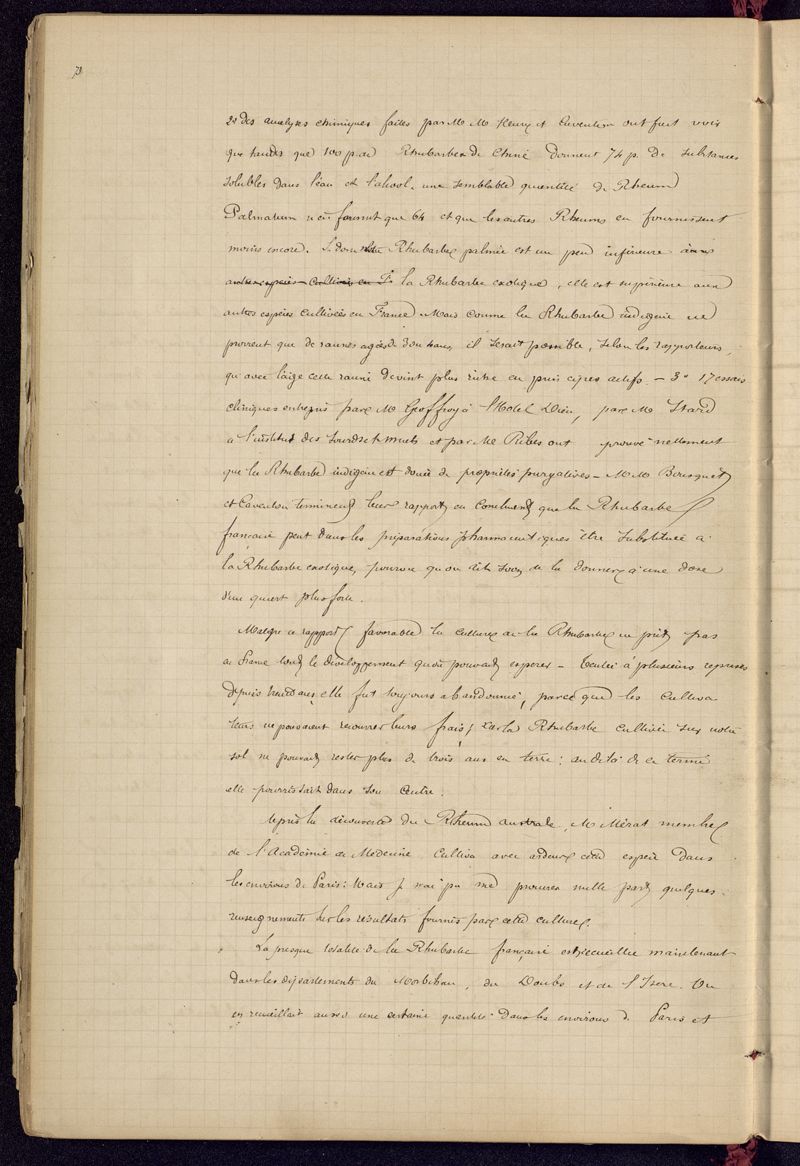 2º des analyses chimiques faites par M M Henry et Caventou ont fait voir
que tandis que 100 p. de Rhubarbe de Chine donnent 74 p. de substances
solubles dans l'eau et l'alcool, une semblable quantité de Rheum
Palmatum n'en fournit que 64 et que les autres Rheums en fournissent
moins encore. Si donc notre Rhubarbe palmée est un peu inférieure à
autres espèces cultivées en F la Rhubarbe exotique, elle est supérieure aux
autres espèces cultivées en France. Mais comme la Rhubarbe indigène ne
provient que de racines agées de 3 ou 4 ans, il serait possible, selon les rapporteurs,
qu'avec l'âge cette racine devint plus riche en principes actifs. — 3º 17 essais
cliniques entrepris par M Geoffroy à l'Hotel Dieu, par M Itard
à l'institut des sourds et muets et par M Ribes ont prouvé nettement
que la Rhubarbe indigène est douée de propriétés purgatives — M M Bousquet
et Caventou terminent leur rapport en concluant que la Rhubarbe
française peut dans les préparations pharmaceutiques être substituée à
la Rhubarbe exotique, pourvu qu'on ait soin de la donner à une dose
d'un quart plus forte.
Malgré ce rapport favorable la culture de la Rhubarbe ne prit pas
en France tout le développement qu'on pouvait espérer — Tentée à plusieurs reprises
depuis trente ans, elle fut toujours abandonnée, parce que les cultiva
teurs ne pouvaient recouvrer leurs frais; car la Rhubarbe cultivée sur notre
sol ne pouvait rester plus de trois ans en terre; au delà de ce terme
elle pourrissait dans son centre.
Après la découverte du Rheum australe, M Mérat membre
de l'Académie de Médecine cultiva avec ardeur cette espèce dans
les environs de Paris: Mais je n'ai pu me procurer nulle part quelques
renseignements sur les résultats fournis par cette culture.
La presque totalité de la Rhubarbe française est recueillie maintenant
dans les départements du Morbihan, du Doubs et de l'Isère. On
en recueillait aussi une certaine quantité dans les environs de Paris et